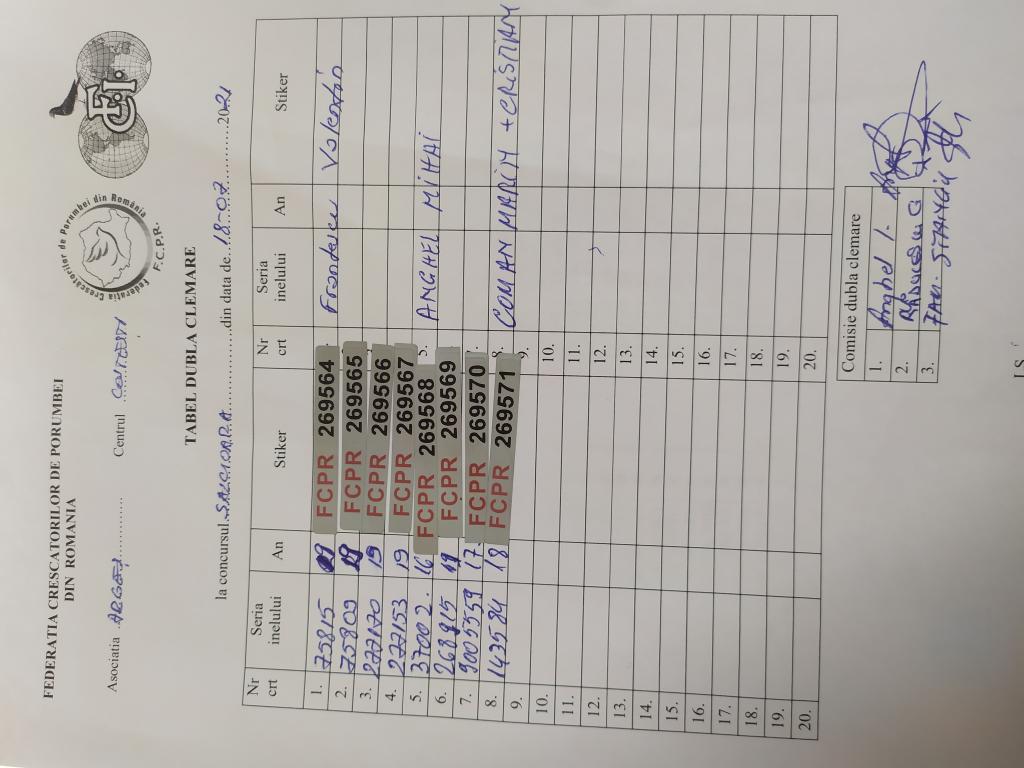 FEDERATIA CRESCATORILOR DE PORUMBEI
DIN ROMANIA
Federația Crescătorilor de Porumbei din România
F.C.P.R.
FCI
Asociatia ARGEȘ Centrul COSTESTI
TABEL DUBLA CLEMARE
la concursul SALCIOARA din data de 18-07 2021
Nr crt Seria inelului An Stiker Nr crt Seria inelului An Stiker
1. 75815 19 FCPR 269564 Frontescu Valentin
2. 75809 19 FCPR 269565
3. 277170 19 FCPR 269566
4. 277153 19 FCPR 269567
5. 370002. 16 FCPR 269568 5. ANGHEL MIHAI
6. 268815 19 FCPR 269569
7. 3005559 17 FCPR 269570
8. 143584 18 FCPR 269571 8. COMAN MARIN + CRISTIAN
9. 9.
10. 10.
11. 11.
12. 12.
13. 13.
14. 14.
15. 15.
16. 16.
17. 17.
18. 18.
19. 19.
20. 20.
Comisie dubla clemare
1. Anghel I.
2.
3. FAM. STANCIU